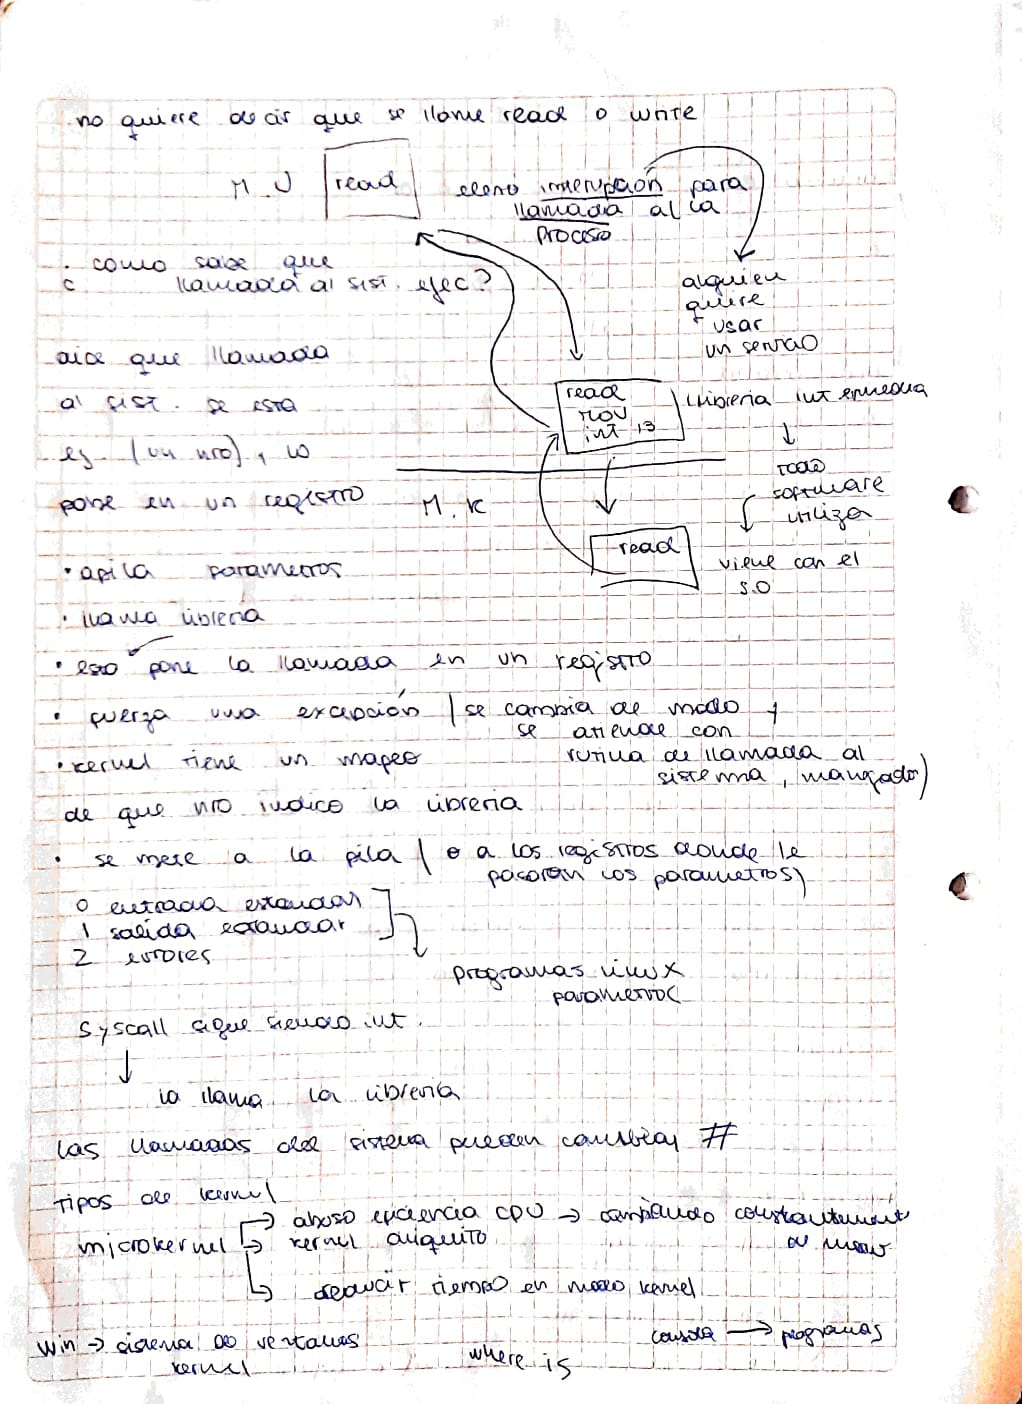 no quiere decir que se llame read o write
M.U read
interrupción para
llamada al la
proceso
. como sabe que
c llamada al sist. ejec?
alguien
quiere
usar
un servicio
dice que llamada
al sist. se está
ej (un nro), lo
pone en un registro
read
mov
int 13
Libreria intermedia
todo
software
utiliza
viene con el
S.O
M.K
read
• apila parametros
• llama libreria
• esto pone la llamada en un registro
• fuerza una excepción (se cambia de modo y
se atiende con
rutina de llamada al
sistema, manejador)
• kernel tiene un mapeo
de que nro indico la libreria
• se mete a la pila ( o a los registros donde le
pasaron los parametros)
0 entrada estandar
1 salida estandar
2 errores
programas linux
parametros
Syscall sigue siendo int.
la llama la libreria
las llamadas del sistema pueden cambiar #
Tipos de kernel
microkernel
abuso eficiencia CPU → cambiando constantemente
de modo
→ kernel chiquito
reducir tiempo en modo kernel
Win → sistema de ventanas
kernel
where is
consola → programas